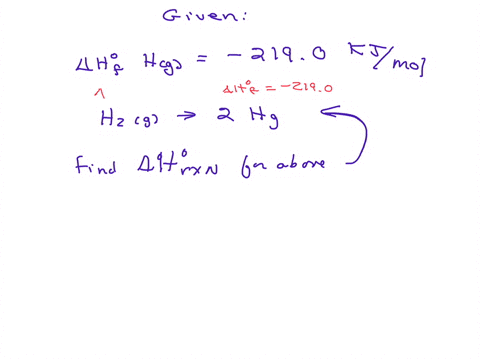 Given:
ΔH°f H(g) = -219.0 KJ/mol
^ ΔH°f = -219.0
H2 (g) → 2 Hg
Find ΔH°rxN for above